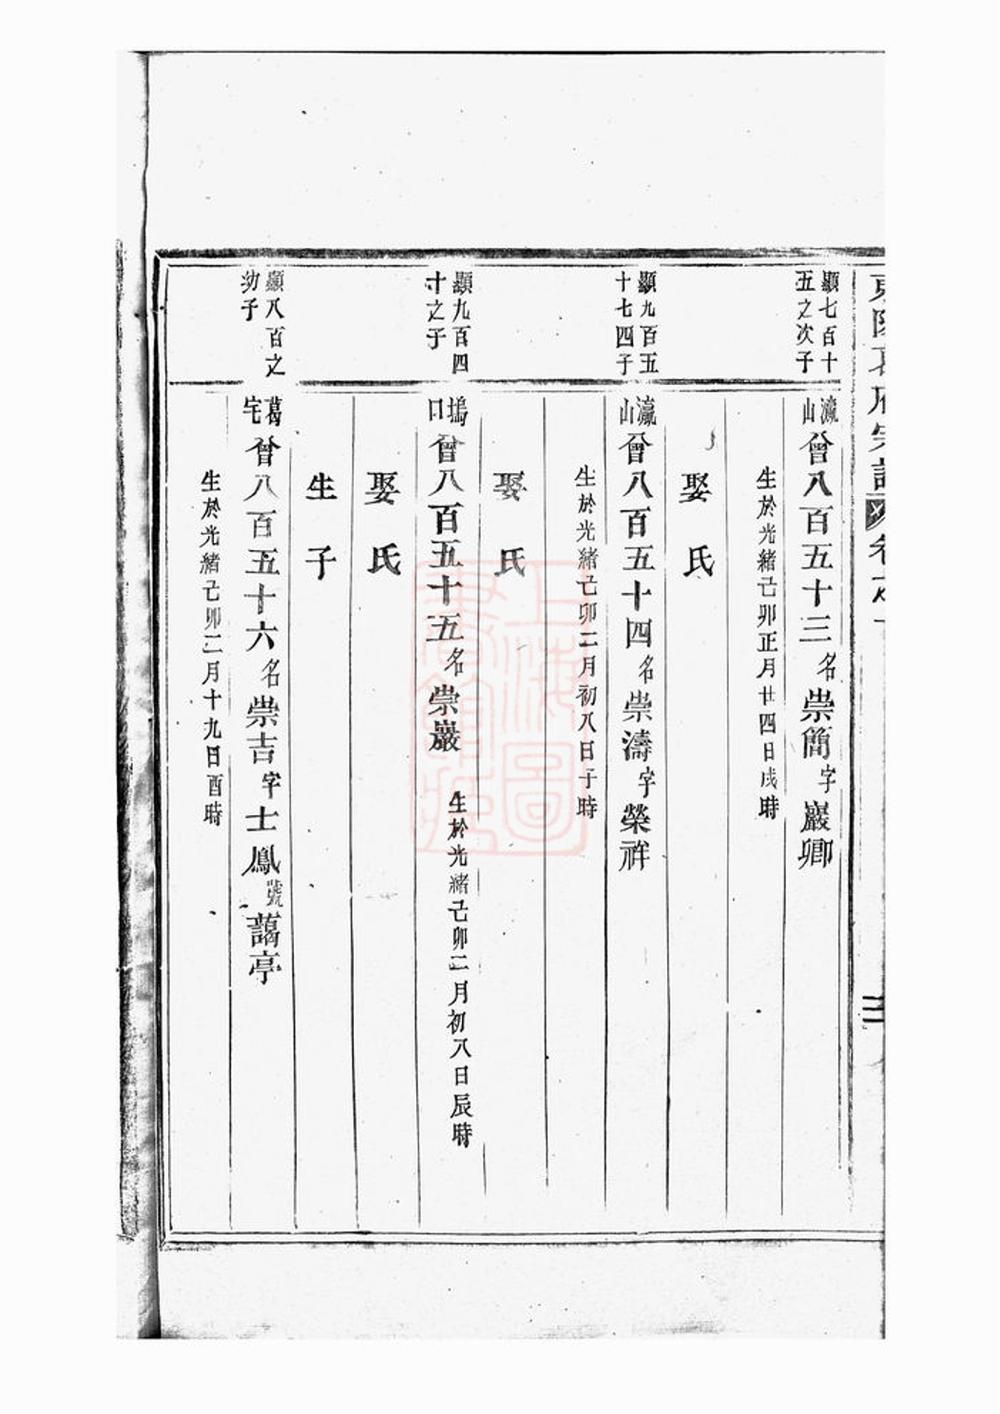 顯七百十
五之次子
瀛山
曾八百五十三名崇簡字巖卿
生於光緒己卯正月廿四日戌時
娶氏
顯九百五
十七四子
瀛山
曾八百五十四名崇濤字榮祥
生於光緒己卯二月初八日子時
娶氏
顯九百四
十之子
塢口
曾八百五十五名崇巖
生於光緒己卯二月初八日辰時
娶氏
生子
顯八百之
幼子
葛宅
曾八百五十六名崇吉字士鳳號藹亭
生於光緒己卯二月十九日酉時
上海圖
書館藏